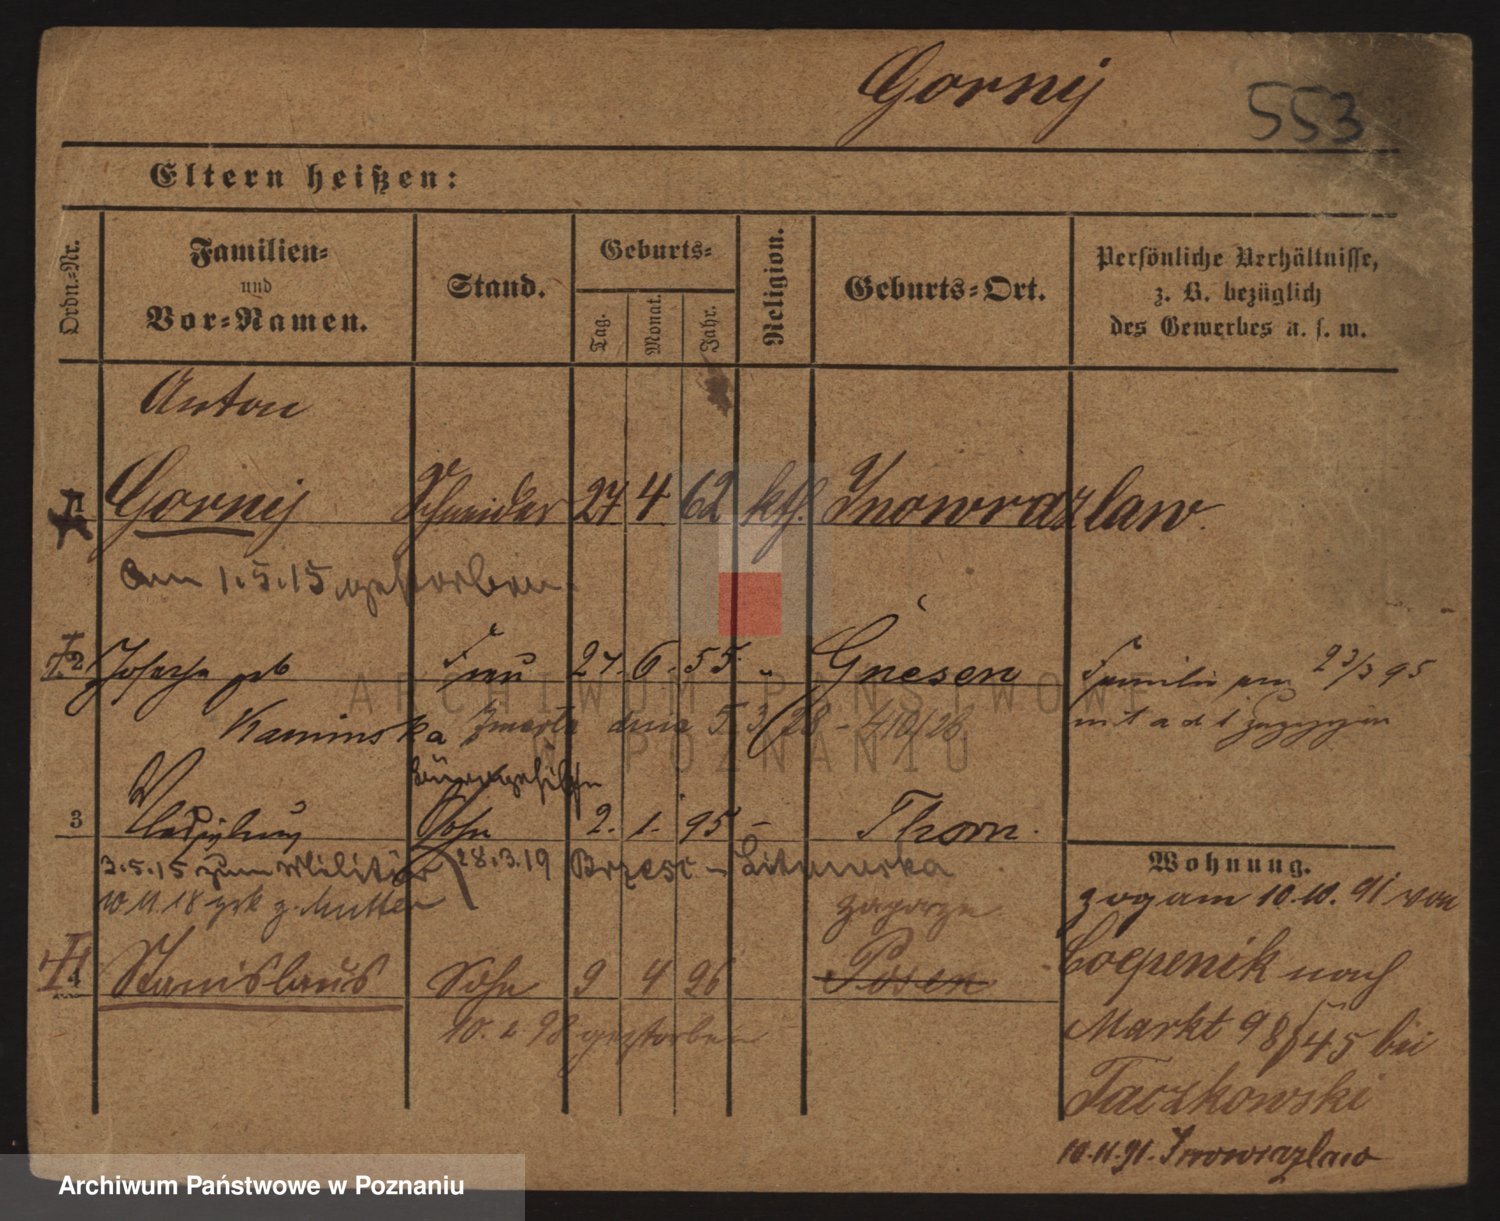 Gorny
553
Eltern heißen:
Ordn.-Nr.
Familien-
und
Vor-Namen.
Stand.
Geburts-
Tag.
Monat.
Jahr.
Religion.
Geburts-Ort.
Persönliche Verhältnisse,
z. B. bezüglich
des Gewerbes u. s. w.
Anton
1 Gorny Schneider 27 4. 62 kth. Inowrazlaw
am 1.5.15 gestorben.
2 Josepha geb Frau 27. 6. 55. " Gnesen Familie am 23/3 95
Kaminska zmarła dnia 5 3/28 - 410/28
Bürogehilfe
3 Sohn 2. 1. 95 - Thorn.
3.5.15 zum Militär 28.3.19 Brzesc - Litewska
10.11.18 zrk z. Mutter
Wohnung.
zog am 10.10. 91 von
Coepenik nach
4 Stanislaus Sohn 9 4 96 Posen
10. 2 98 gestorben
Markt 98/45 bei
Taczkowski
10.11.91. Inowrazlaw
ARCHIWUM PAŃSTWOWE
W POZNANIU
Archiwum Państwowe w Poznaniu